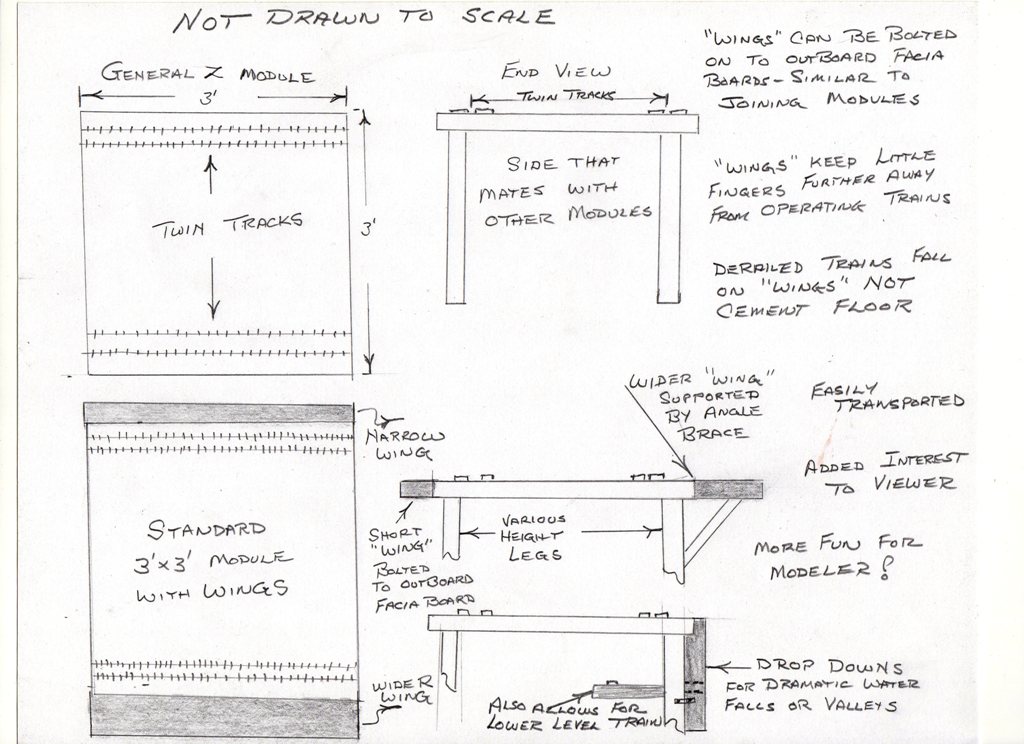 NOT DRAWN TO SCALE
GENERAL Z MODULE
3'
3'
TWIN TRACKS
END VIEW
TWIN TRACKS
SIDE THAT
MATES WITH
OTHER MODULES
"WINGS" CAN BE BOLTED
ON TO OUTBOARD FACIA
BOARDS - SIMILAR TO
JOINING MODULES
"WINGS" KEEP LITTLE
FINGERS FURTHER AWAY
FROM OPERATING TRAINS
DERAILED TRAINS FALL
ON "WINGS" NOT
CEMENT FLOOR
NARROW
WING
STANDARD
3'x3' MODULE
WITH WINGS
WIDER
WING
WIDER "WING"
SUPPORTED
BY ANGLE
BRACE
SHORT
"WING"
BOLTED
TO OUTBOARD
FACIA BOARD
VARIOUS
HEIGHT
LEGS
EASILY
TRANSPORTED
ADDED INTEREST
TO VIEWER
MORE FUN FOR
MODELER!
ALSO ALLOWS FOR
LOWER LEVEL TRAIN
DROP DOWNS
FOR DRAMATIC WATER
FALLS OR VALLEYS